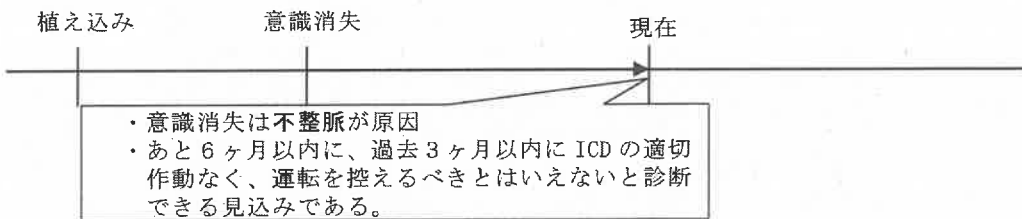 植え込み 意識消失 現在
・意識消失は不整脈が原因
・あと６ヶ月以内に、過去３ヶ月以内に ICD の適切
作動なく、運転を控えるべきとはいえないと診断
できる見込みである。